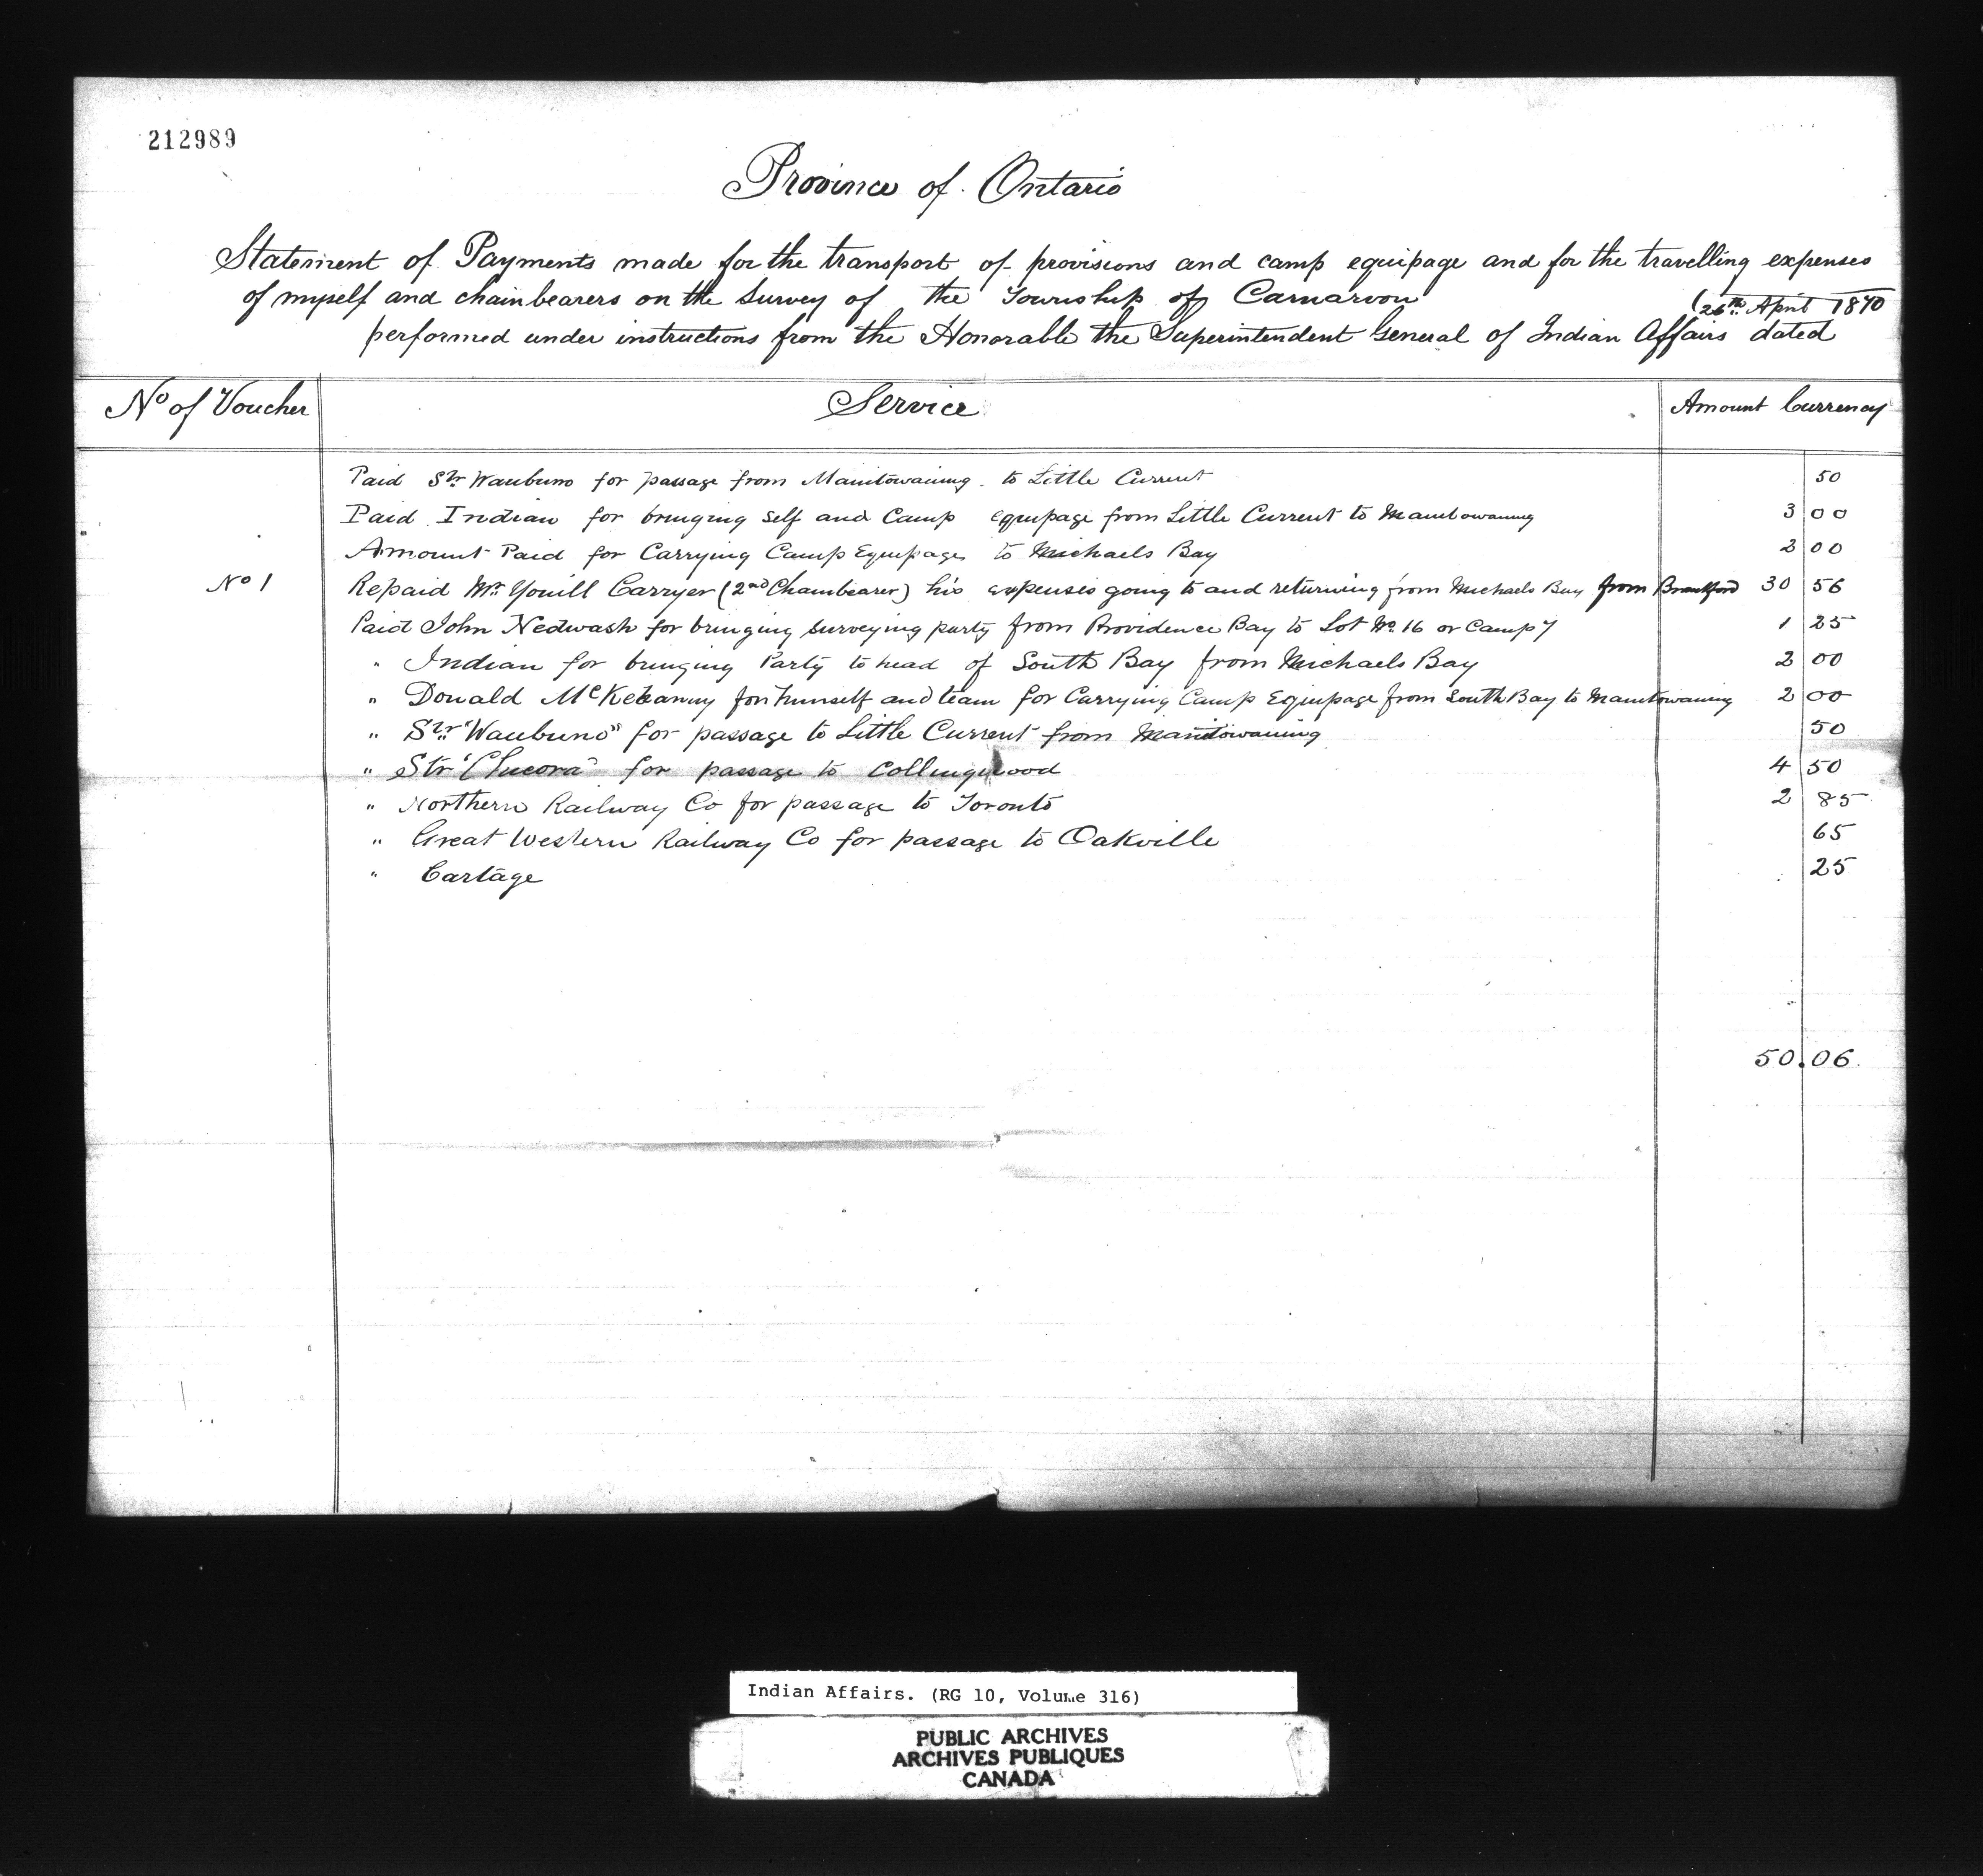 212989
Province of Ontario
Statement of Payments made for the transport of provisions and camp equipage and for the travelling expenses
of myself and chainbearers on the Survey of the Township of Carnarvon
(26th April 1870
performed under instructions from the Honorable the Superintendent General of Indian Affairs dated
No of Voucher Service Amount Currency
Paid Str Waubuno for passage from Manitowaning to Little Current 50
Paid Indian for bringing Self and Camp Equipage from Little Current to Manitowaning 3 00
Amount Paid for Carrying Camp Equipage to Michaels Bay 2 00
No 1 Repaid Mr Youill Carryer (2nd Chainbearer) his expenses going to and returning from Michaels Bay from Brantford 30 56
Paid John Nedwash for bringing surveying party from Providence Bay to Lot No. 16 or Camp 7 1 25
" Indian for bringing Party to head of South Bay from Michaels Bay 2 00
" Donald for himself and team for Carrying Camp Equipage from South Bay to Manitowaning 2 00
" Str "Waubuno" for passage to Little Current from Manitowaning 50
" Str "Chicora" for passage to Collingwood 4 50
" Northern Railway Co for passage to Toronto 2 85
" Great Western Railway Co for passage to Oakville 65
" Cartage 25
50.06
Indian Affairs. (RG 10, Volume 316)
PUBLIC ARCHIVES
ARCHIVES PUBLIQUES
CANADA